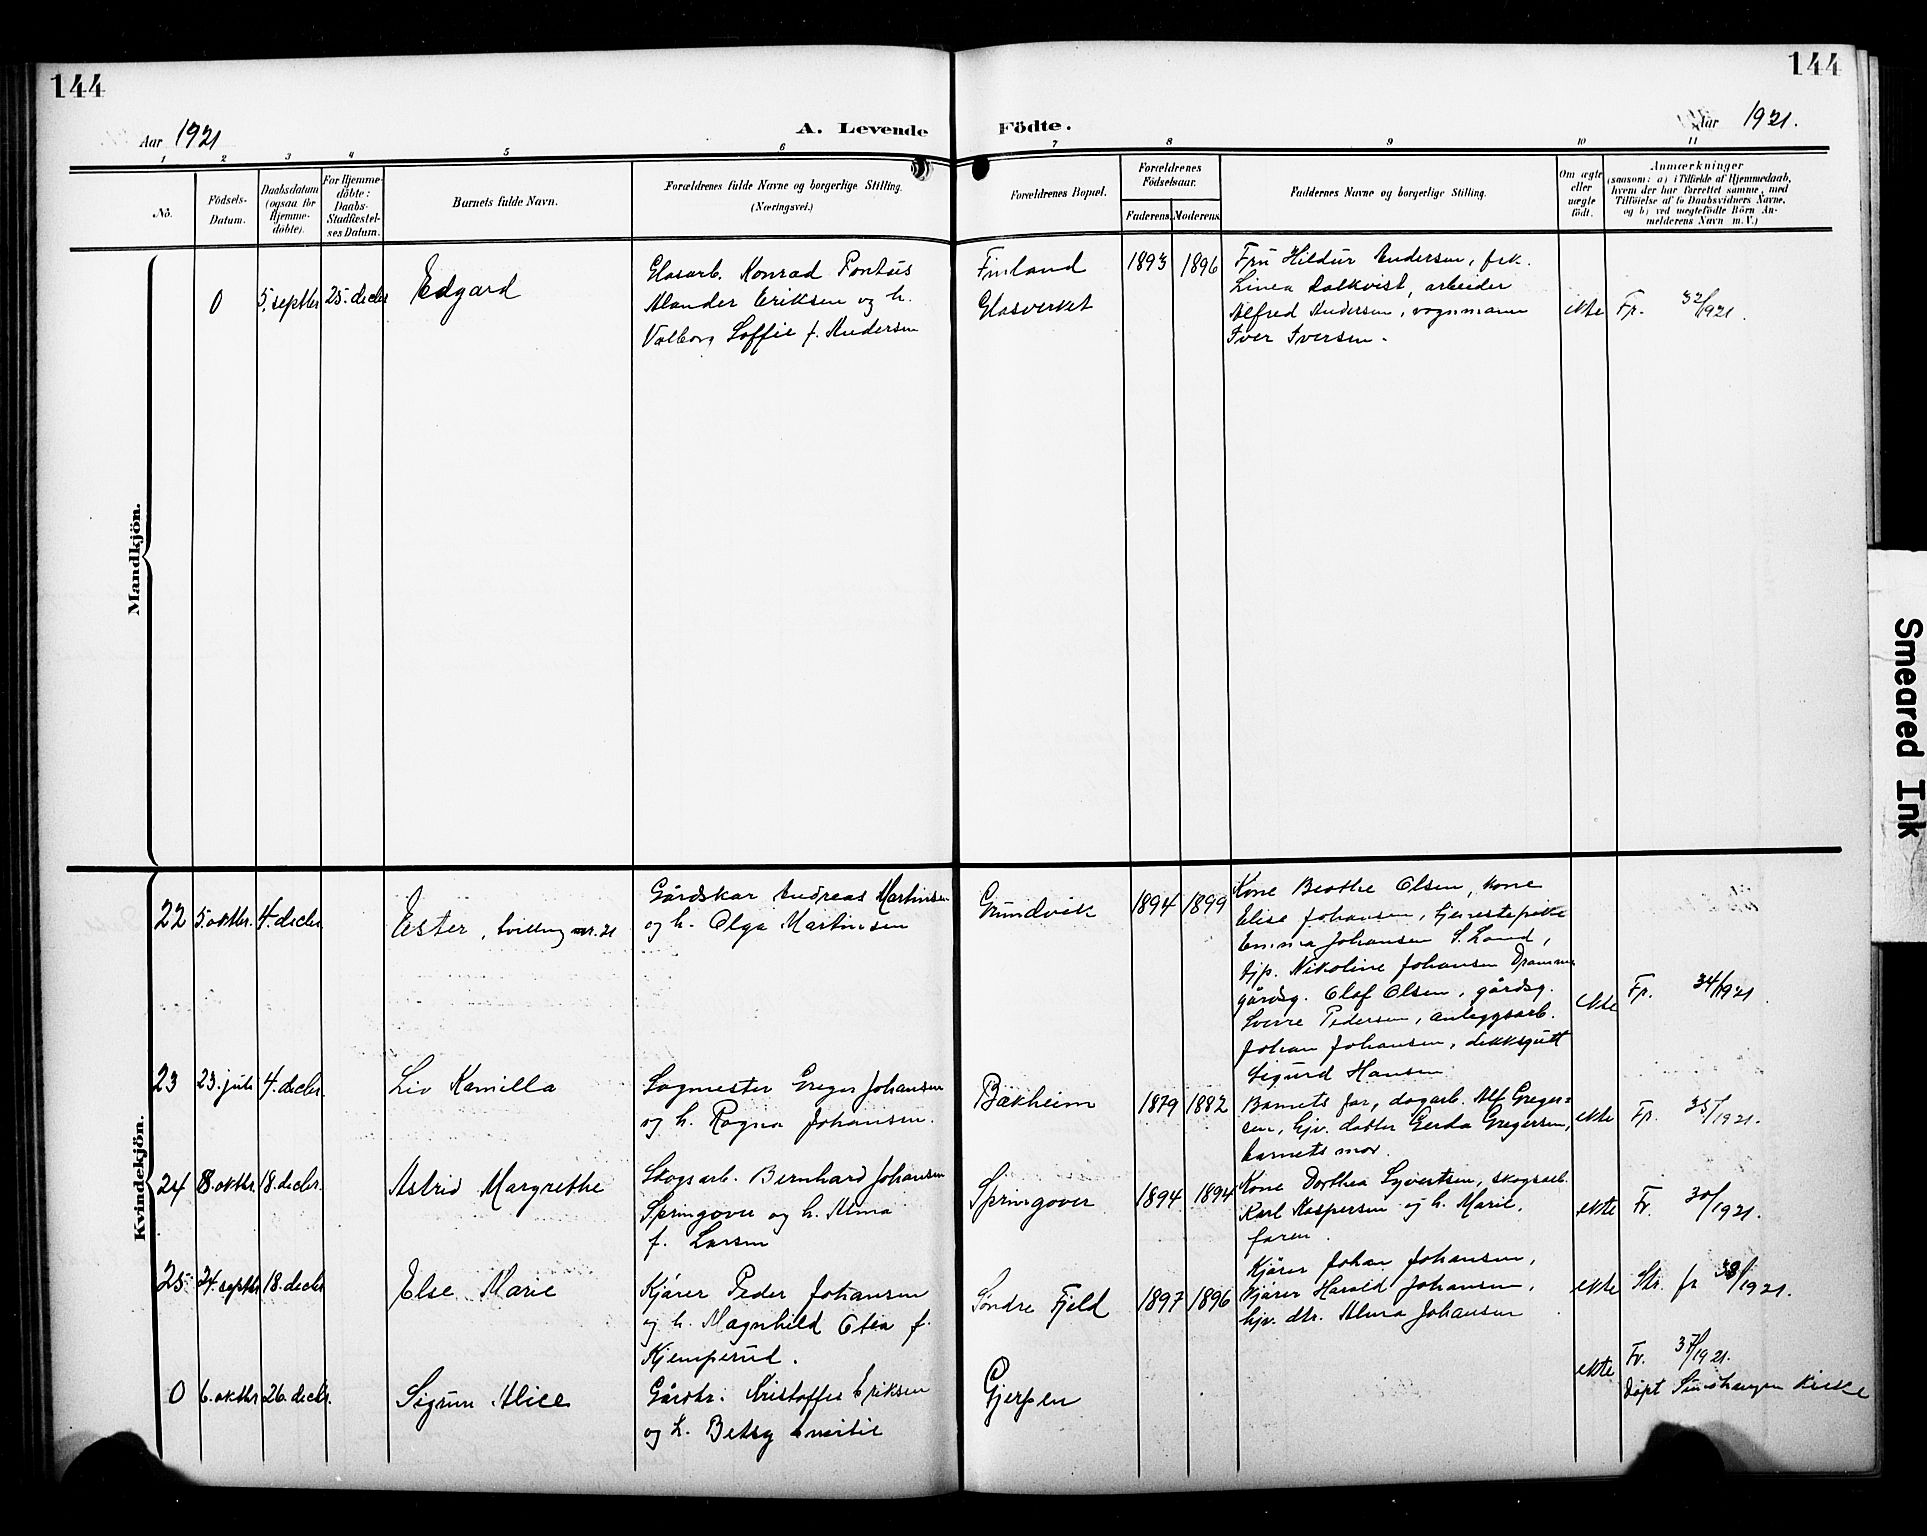 144
144
Aar 1921
A. Levende
Födte.
Aar 1921.
1 2 3 4 5 6 7 8 9 10 11
No.
Födsels-
Datum.
Daabsdatum
(ogsaa for
Hjemme-
döbte).
For Hjemme-
döbte:
Daabs-
Stadfæstel-
ses Datum.
Barnets fulde Navn.
Forældrenes fulde Navne og borgerlige Stilling.
(Næringsvei.)
Forældrenes Bopæl.
Forældrenes
Födselsaar.
Faderens.
Moderens.
Faddernes Navne og borgerlige Stilling.
Om ægte
eller
uægte
födt.
Anmærkninger
(saasom: a) i Tilfælde af Hjemmedaab,
hvem der har forrettet samme, med
Tilföielse af to Daabsvidners Navne,
og b) ved uægtefödte Börn An-
melderens Navn m.V.)
Mandkjön.
0
5. septbr
25. decbr
Edgard
Glasarb. Konrad Pontus
Alander Eriksen og h.
Valborg Soffie f. Andersen
Finland
Glasverket
1893
1896
Fru Hildur Andersen, frk.
Linea Dalkvist, arbeider
Alfred Andersen, vognmann
Iver Iversen.
ekte
Fp. 32/1921.
Kvindekjön.
22
5. oktbr.
4. decbr.
Ester, tvilling nr. 21
Gårdskar Andreas Martinsen
og h. Olga Martinsen
Grundvik
1894
1899
Kone Beathe Olsen, kone
Elise Johansen, tjenestepike
Emma Johansen S. Land,
tjp. Nikoline Johansen Drammen
gårdsg. Olaf Olsen, gårdsg.
Sverre Pedersen, anleggsarb.
Johan Johansen, dekksgutt
Sigurd Hansen
ekte
Fp. 34/1921.
23
23. juli
4. decbr.
Liv Kamilla
Sagmester Greger Johansen
og h. Ragna Johansen.
Bækheim
1879
1882
Barnets far, dagarb. Alf Greger=
sen, hjv. datter Gerda Gregersen,
barnets mor.
ekte
Fp. 35/1921.
24
8. oktbr.
18. decbr.
Astrid Margrethe
Skogsarb. Bernhard Johansen
Springover og h. Alma
f. Larsen
Springover
1894
1894
Kone Dorthea Syvertsen, skogsarb.
Karl Kaspersen og h. Marie,
faren.
ekte
Fr. 30/1921.
25
24. septbr
18. decbr
Else Marie
Kjører Peder Johansen
og h. Magnhild Otea f.
Kjemperud.
Søndre Fjeld
1897
1896
Kjører Johan Johansen,
kjører Harald Johansen,
hjv. dtr. Alma Johansen
ekte
Str. fr 38/1921.
0
6. oktbr
26. decbr.
Sigrun Alice
Gårdbr. Kristoffer Eriksen
og h. Betsy Emilie
Gjerpen
ekte
Fr. 37/1921.
døpt kirke
Smeared Ink